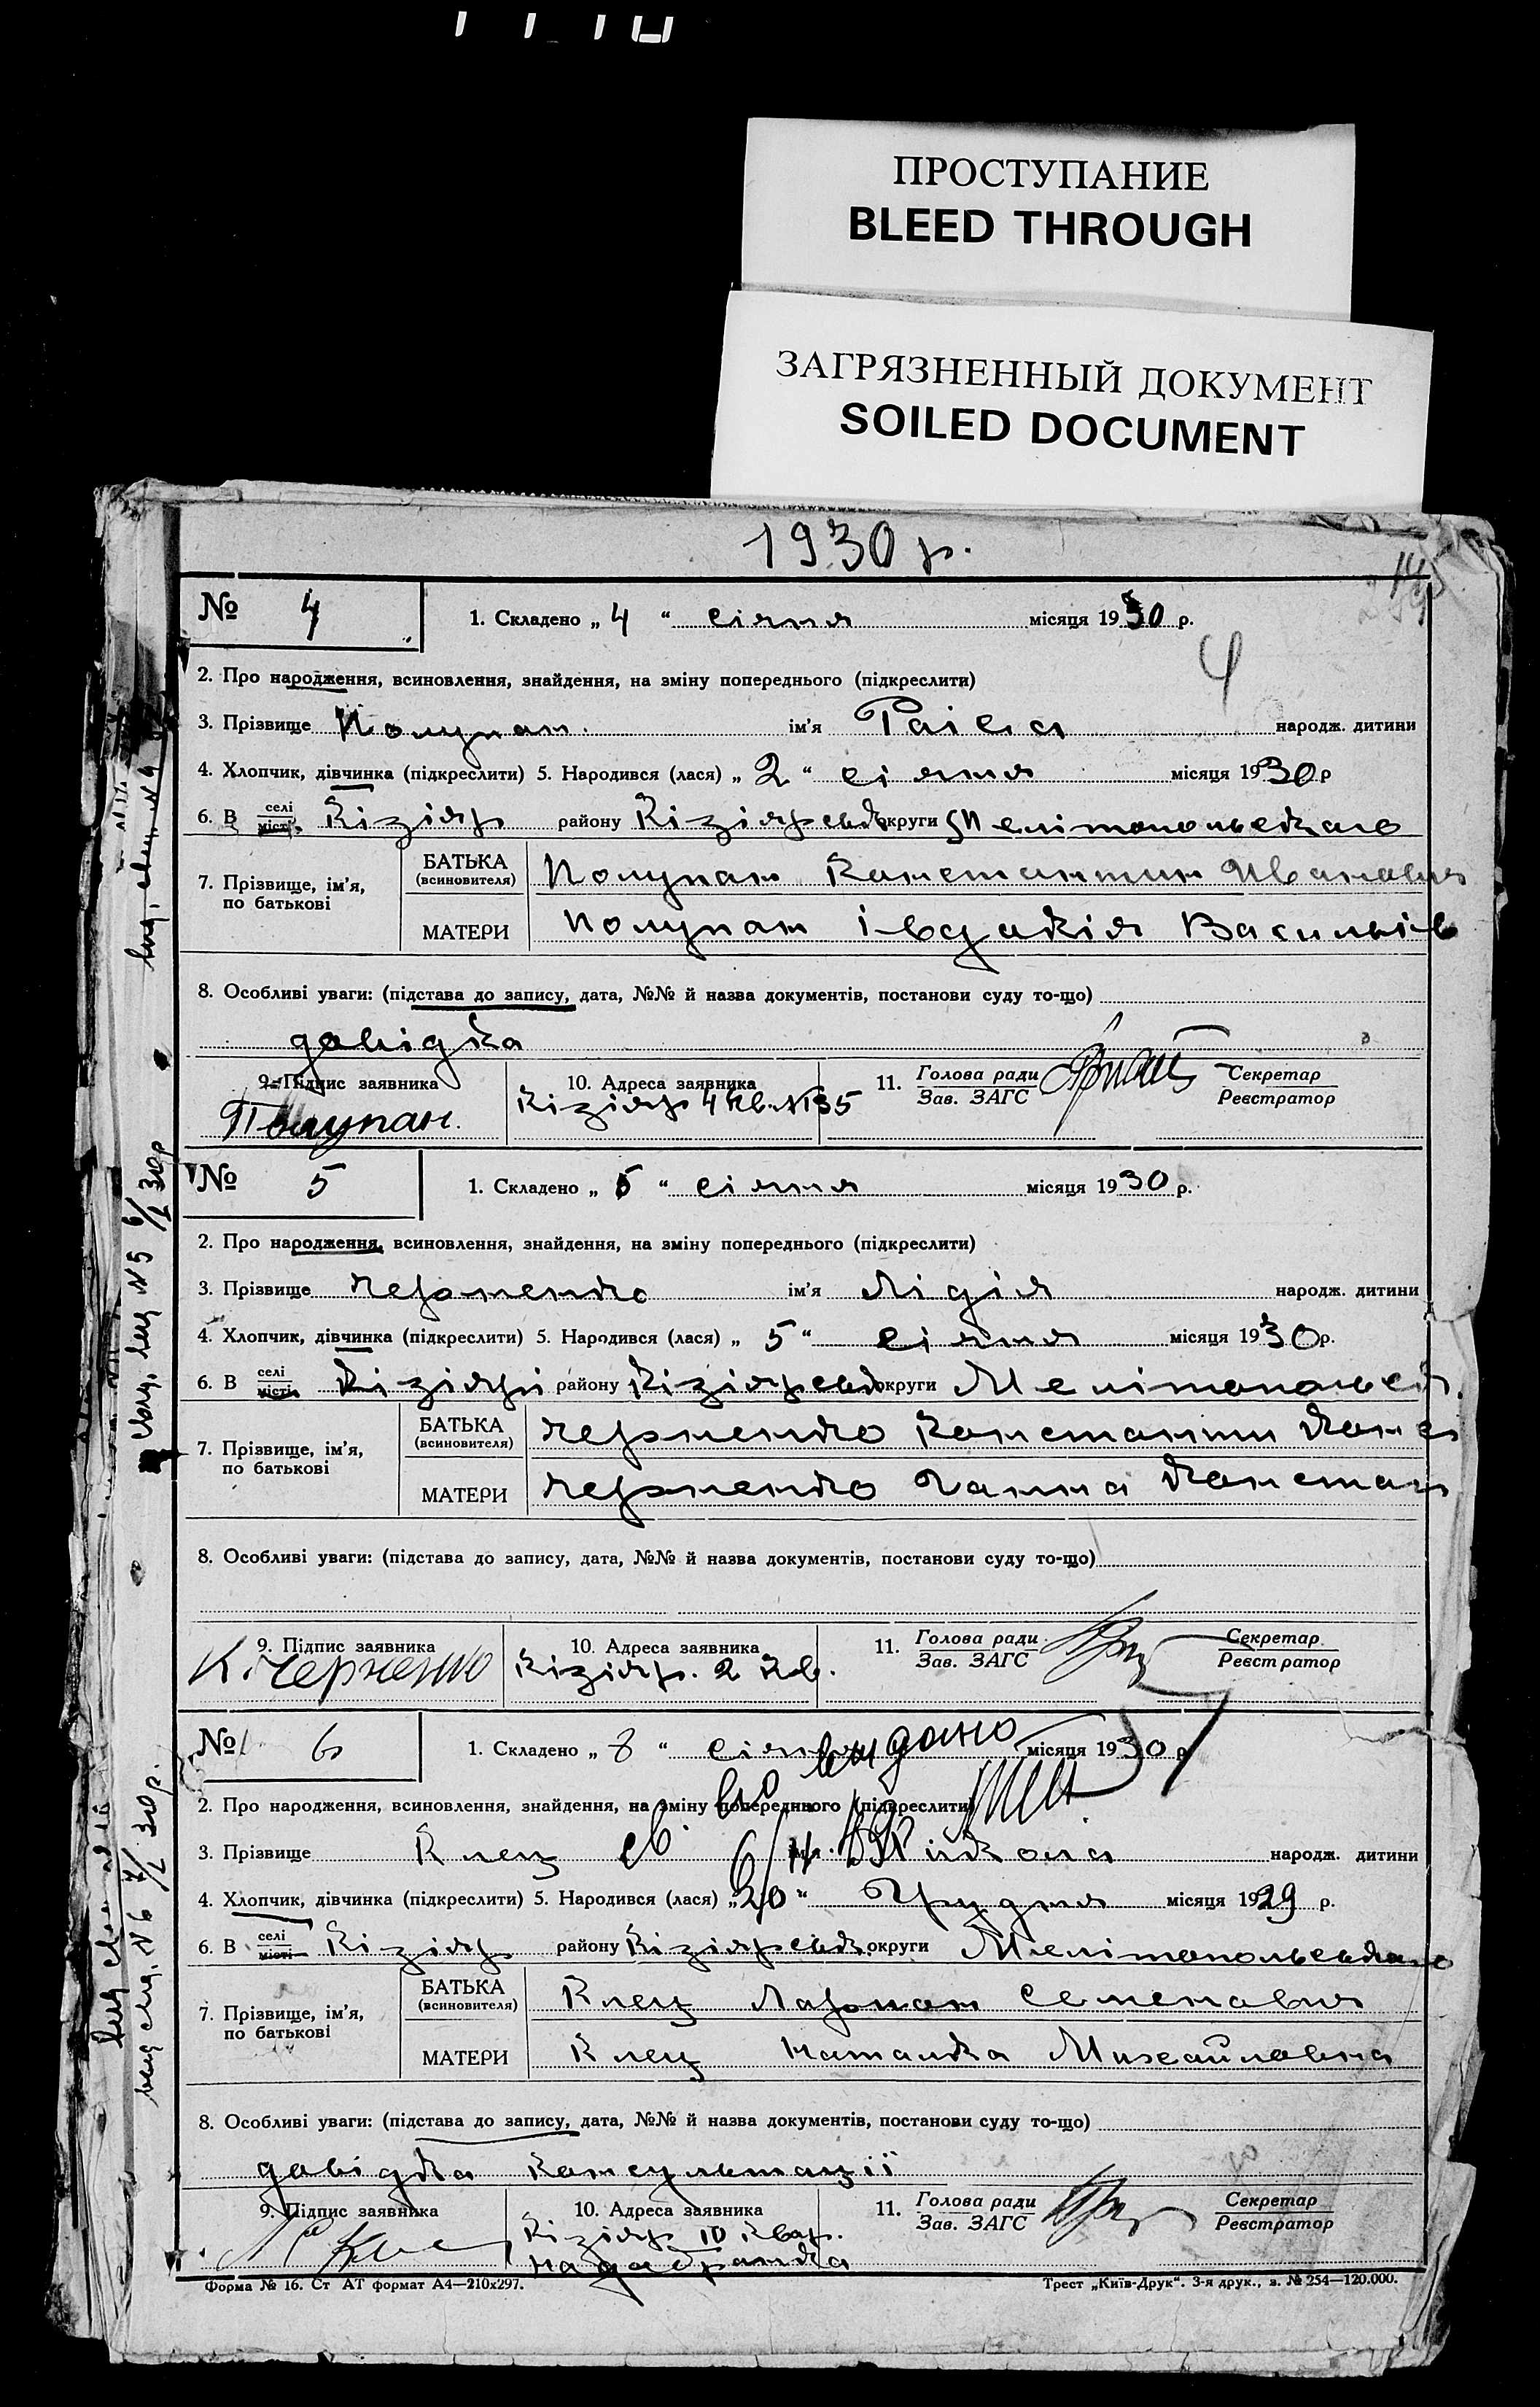 ПРОСТУПАНИЕ
BLEED THROUGH
ЗАГРЯЗНЕННЫЙ ДОКУМЕНТ
SOILED DOCUMENT
1930 р.
№ 4
1. Складено „ 4 “ січня місяця 1930 р.
4
2. Про народження, всиновлення, знайдення, на зміну попереднього (підкреслити)
3. Прізвище Полупан. ім'я Раіса народж. дитини
4. Хлопчик, дівчинка (підкреслити) 5. Народився (лася) „ 2 “ січня місяця 1930 р
6. В селі місті Кізіяр району Кізіярськ округи Мелітопольського
7. Прізвище, ім'я, по батькові
БАТЬКА (всиновителя) Полупан Констянтин Иванович
МАТЕРИ Полупан Івдокія Васильів
8. Особливі уваги: (підстава до запису, дата, №№ й назва документів, постанови суду то-що)
довідка
9. Підпис заявника 10. Адреса заявника 11. Голова ради Зав. ЗАГС Секретар Реєстратор
Полупан. Кізіяр 4 кв. №135
№ 5
1. Складено „ 5 “ січня місяця 1930 р.
2. Про народження, всиновлення, знайдення, на зміну попереднього (підкреслити)
3. Прізвище Черненко ім'я Лідія народж. дитини
4. Хлопчик, дівчинка (підкреслити) 5. Народився (лася) „ 5 “ січня місяця 1930 р.
6. В селі місті Кізіярі району Кізіярськ округи Мелітопольськ.
7. Прізвище, ім'я, по батькові
БАТЬКА (всиновителя) Черненко Констянти Конс
МАТЕРИ Черненко Ганна Констан
8. Особливі уваги: (підстава до запису, дата, №№ й назва документів, постанови суду то-що)
9. Підпис заявника 10. Адреса заявника 11. Голова ради Зав. ЗАГС Секретар Реєстратор
К. Черненко Кізіяр. 2 кв.
№ 6
1. Складено „ 8 “ січня місяця 1930 р
видано
2. Про народження, всиновлення, знайдення, на зміну попереднього (підкреслити)
3. Прізвище Клец ім'я Микола народж. дитини
4. Хлопчик, дівчинка (підкреслити) 5. Народився (лася) „ 20 “ Грудня місяця 1929 р.
6. В селі місті Кізіяр району Кізіярськ округи Мелітопольського
7. Прізвище, ім'я, по батькові
БАТЬКА (всиновителя) Клец Ларион Семенович
МАТЕРИ Клец Наталка Михайловна
8. Особливі уваги: (підстава до запису, дата, №№ й назва документів, постанови суду то-що)
довідка консультації
9. Підпис заявника 10. Адреса заявника 11. Голова ради Зав. ЗАГС Секретар Реєстратор
Кізіяр 10 квар.
Форма № 16. Ст АТ формат А4—210х297. Трест „Київ-Друк“. 3-я друк., з. № 254—120.000.